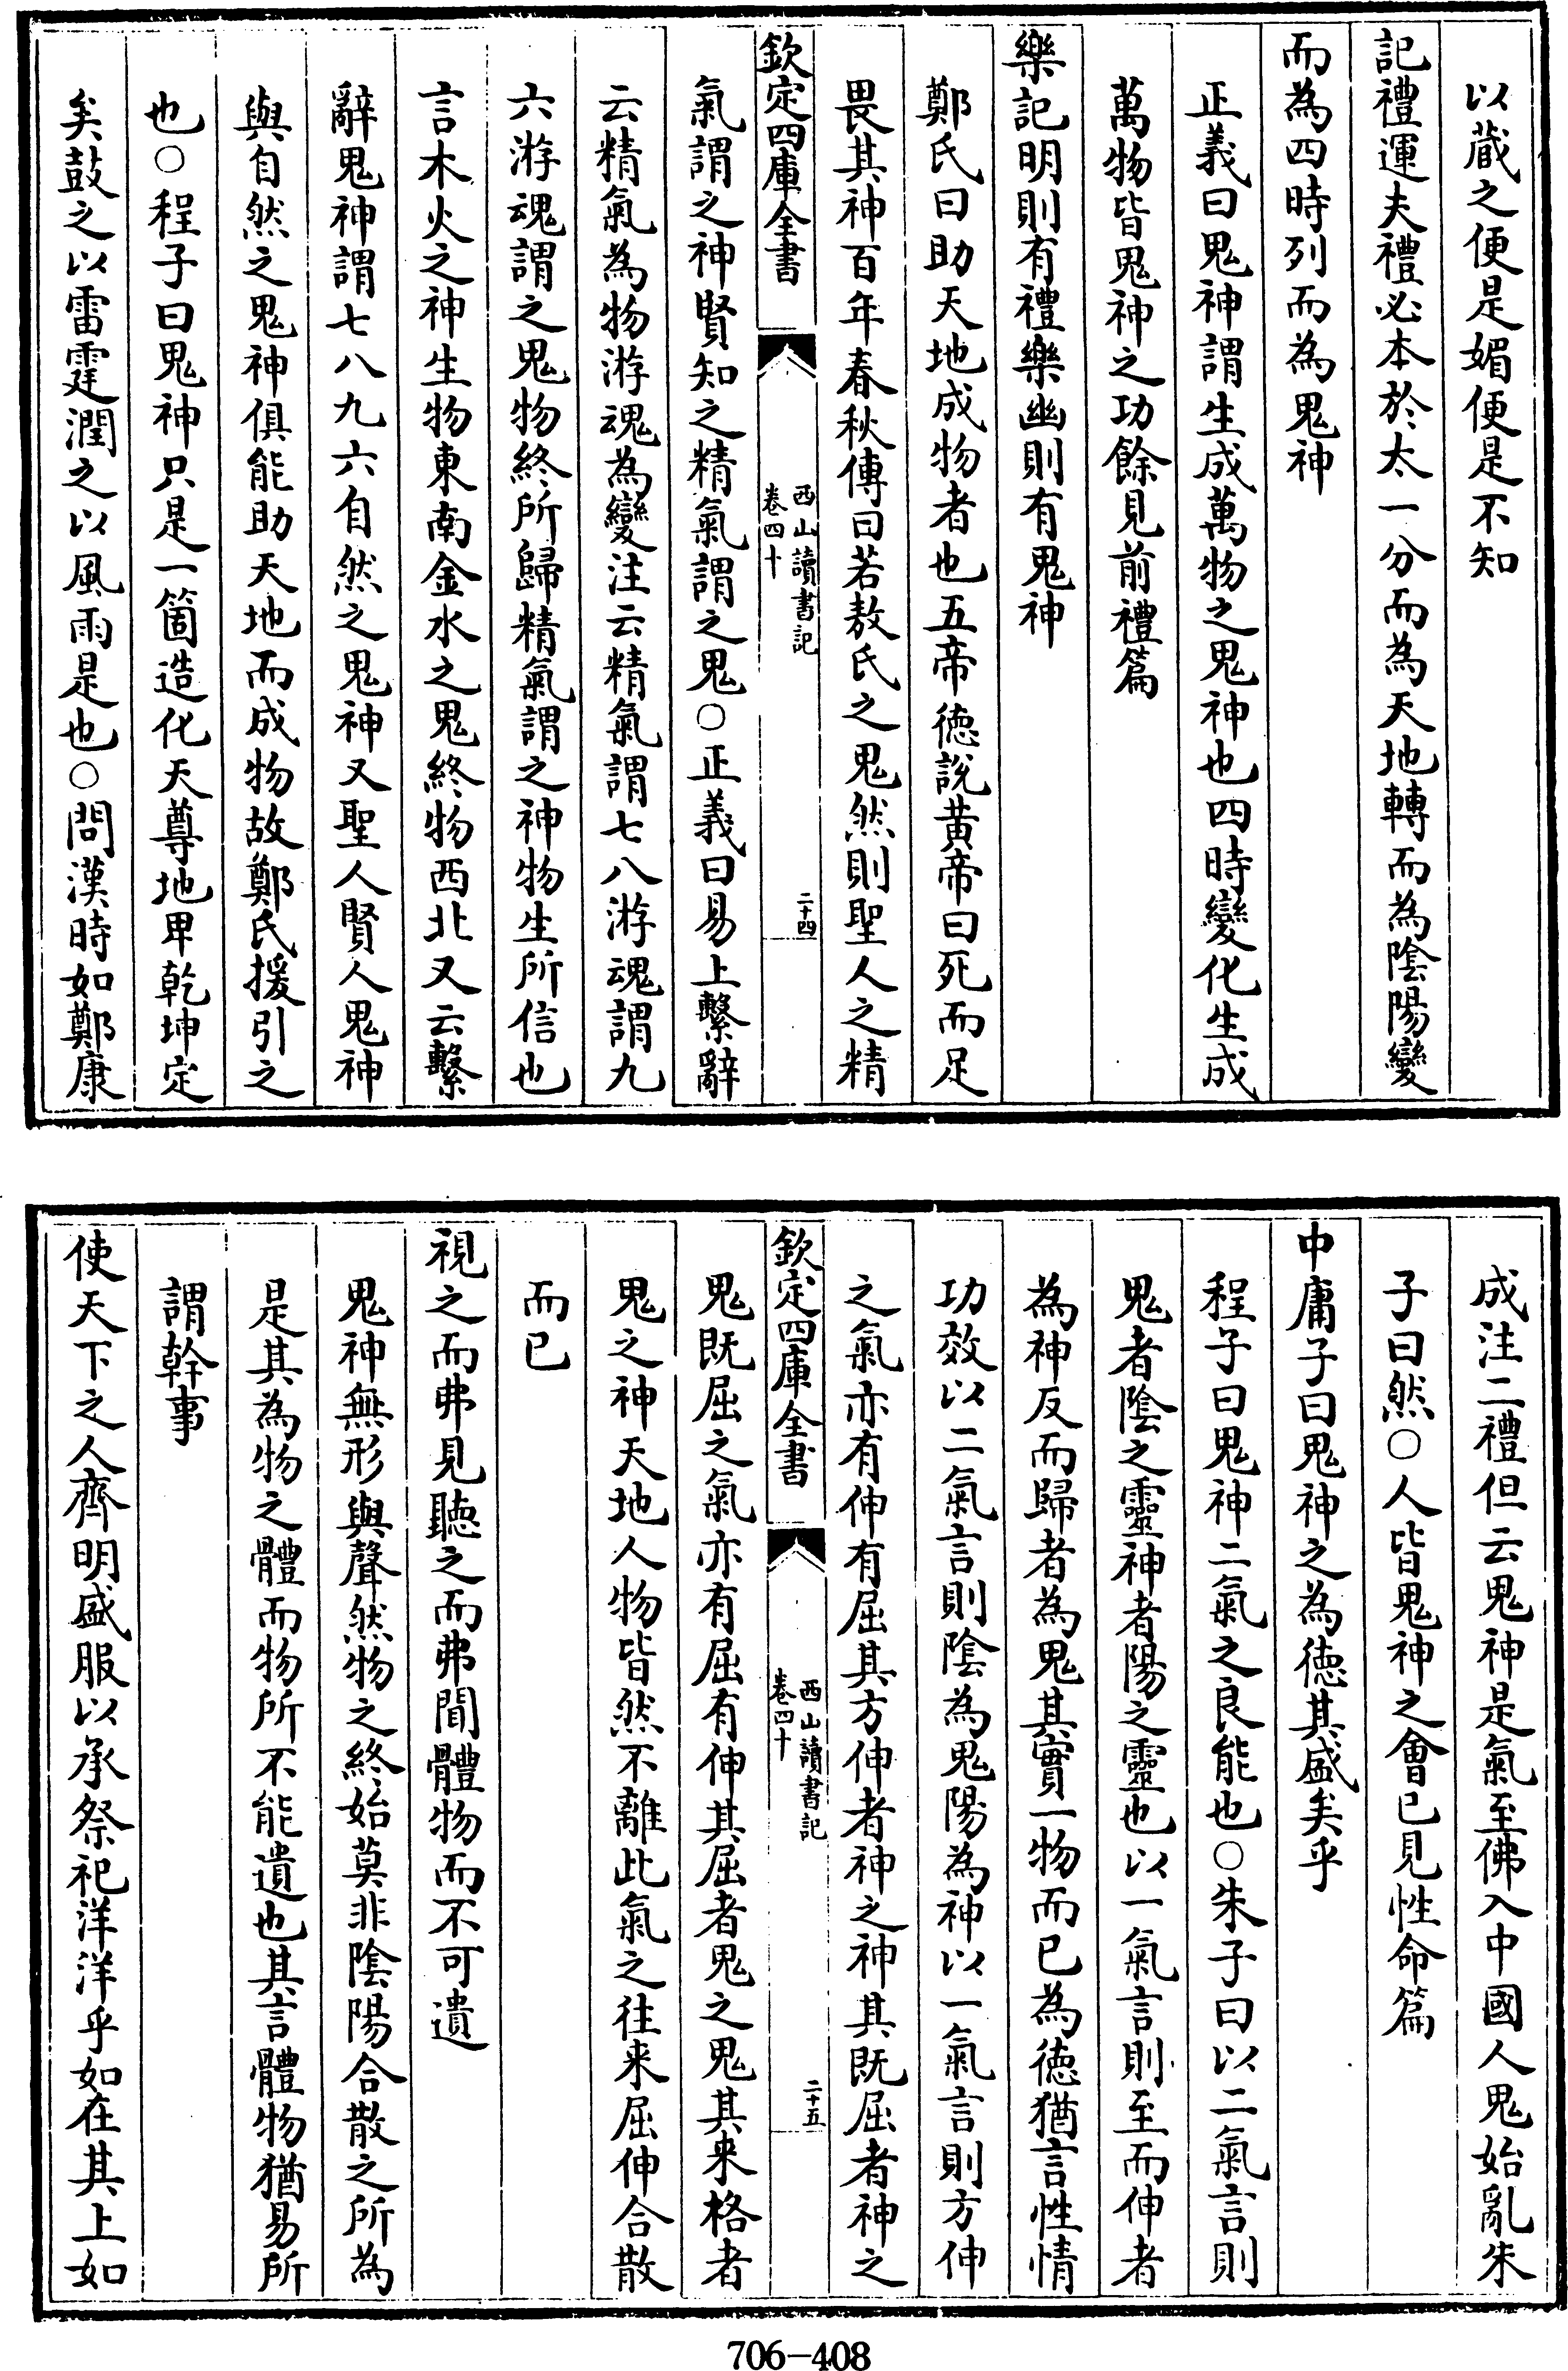 以蔵之便是媚便是不知
記禮運夫禮必本於太一分而為天地轉而為陰陽變
而為四時列而為鬼神
正義曰鬼神謂生成萬物之鬼神也四時變化生成
萬物皆鬼神之功餘見前禮篇
樂記明則有禮樂幽則有鬼神
鄭氏曰助天地成物者也五帝徳說黄帝曰死而足
畏其神百年春秋傳曰若敖氏之鬼然則聖人之精
欽定四庫全書
西山讀書記
卷四十
二十四
氣謂之神賢知之精氣謂之鬼○正義曰易上繫辭
云精氣為物游魂為變注云精氣謂七八游魂謂九
六游魂謂之鬼物終所歸精氣謂之神物生所信也
言木火之神生物東南金水之鬼終物西北又云繫
辭鬼神謂七八九六自然之鬼神又聖人賢人鬼神
與自然之鬼神俱能助天地而成物故鄭氏援引之
也○程子曰鬼神只是一箇造化天尊地卑乾坤定
矣鼓之以雷霆潤之以風雨是也○問漢時如鄭康
成注二禮但云鬼神是氣至佛入中國人鬼始亂朱
子曰然○人皆鬼神之會已見性命篇
中庸子曰鬼神之為徳其盛矣乎
程子曰鬼神二氣之良能也○朱子曰以二氣言則
鬼者陰之靈神者陽之靈也以一氣言則至而伸者
為神反而歸者為鬼其實一物而已為徳猶言性情
功效以二氣言則陰為鬼陽為神以一氣言則方伸
之氣亦有伸有屈其方伸者神之神其既屈者神之
欽定四庫全書
西山讀書記
卷四十
二十五
鬼既屈之氣亦有屈有伸其屈者鬼之鬼其来格者
鬼之神天地人物皆然不離此氣之往来屈伸合散
而已
視之而弗見聽之而弗聞體物而不可遺
鬼神無形與聲然物之終始莫非陰陽合散之所為
是其為物之體而物所不能遺也其言體物猶易所
謂幹事
使天下之人齊明盛服以承祭祀洋洋乎如在其上如
706-408